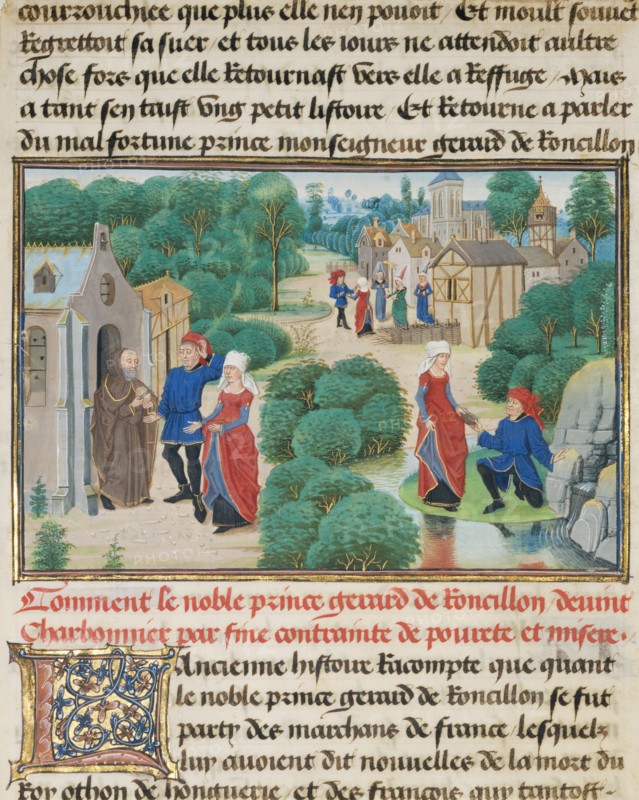 courrouchiee que plus elle nen pouoit / Et moult souuet
Regrettoit sa suer / et tous les iours ne attendoit aultre
chose fors que elle Retournast vers elle a Reffuge / Mais
a tant sen taist vng petit listoire / Et Retourne a parler
du mal fortune prince monseigneur gerard de Roncillon
Comment le noble prince gerard de Roncillon / deuint
Charbonnier par fine contrainte de pourete et misere.
LAncienne histoire Racompte que quant
le noble prince gerard de Roncillon se fut
party des marchans de france / lesquelz
luy auoient dit nouuelles de la mort du
Roy othon de honguerie / et des francois quy tantost-